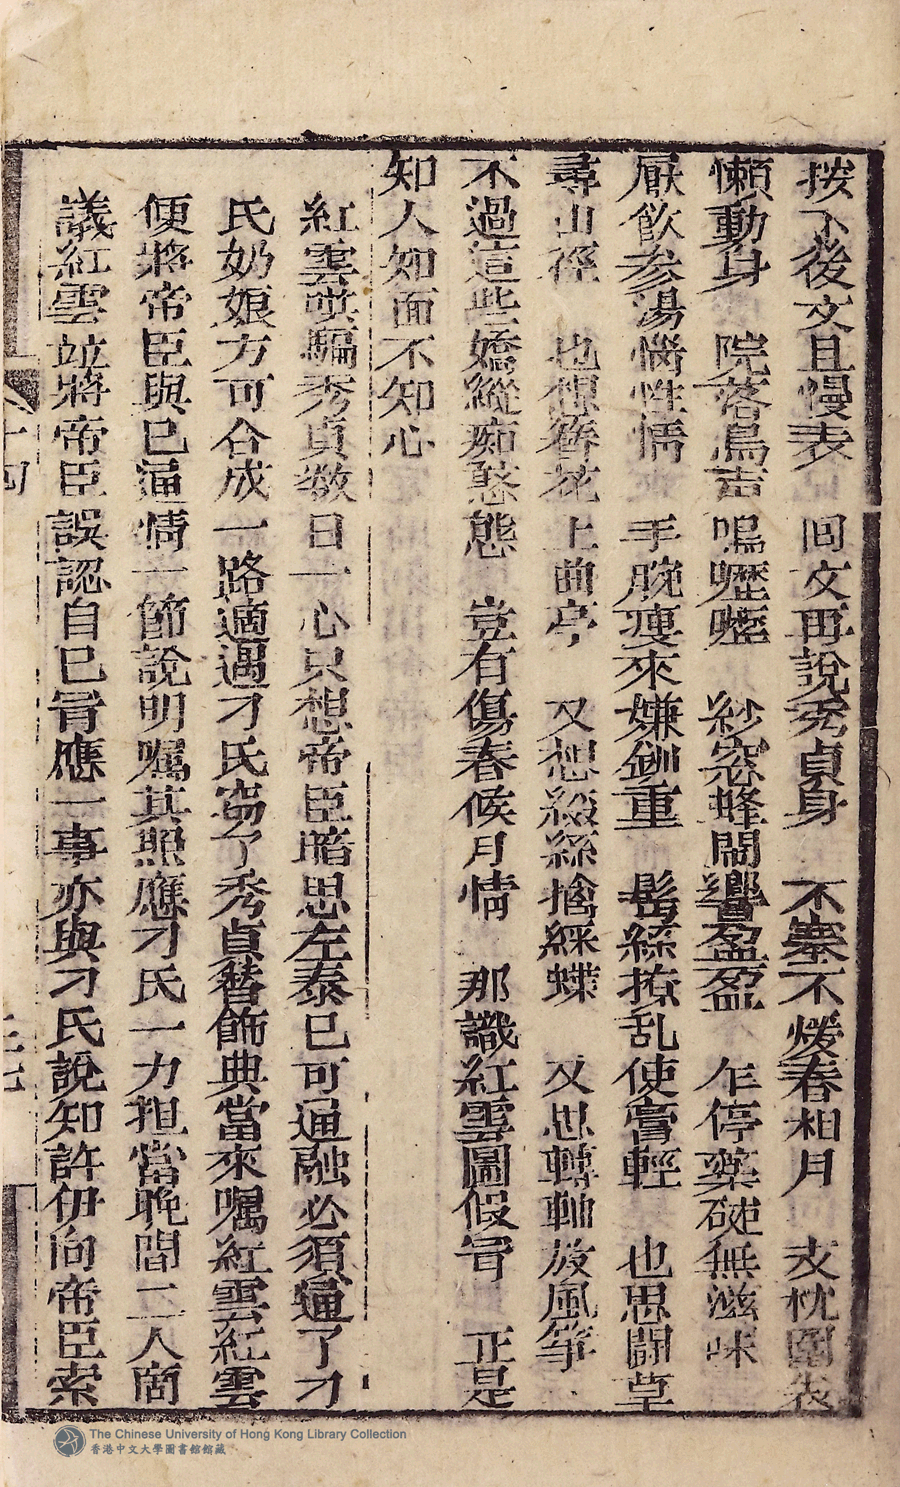 按下後文且慢表 囘文再說秀貞身 不寒不煖春相月 支枕圍衾
懶動身 院落鳥声鳴嚦嚦 紗窓蜂鬧響盈盈 乍停藥碴無滋味
厭飲参湯惱性情 手腕瘦來嫌釧重 髻絲撩乱使膏輕 也思鬪草
尋山徑 也想簪花上曲亭 又想綴絲擒綵蝶 又思轉軸放風箏
不過這些嬌縱痴憨態 豈有傷春候月情 那識紅雲圖假冐 正是
知人知面不知心
紅雲哄騙秀貞数日一心只想帝臣暗思左泰已可通融必須通了刁
氏奶娘方可合成一路適遇刁氏竊了秀貞簪飾典當來嘱紅雲紅雲
便將帝臣與已通情一節說明嘱其照應刁氏一力担當晚間二人商
議紅雲竝將帝臣誤認自已冐應一事亦與刁氏說知許伊向帝臣索
十四
The Chinese University of Hong Kong Library Collection
香港中文大學圖書館館藏